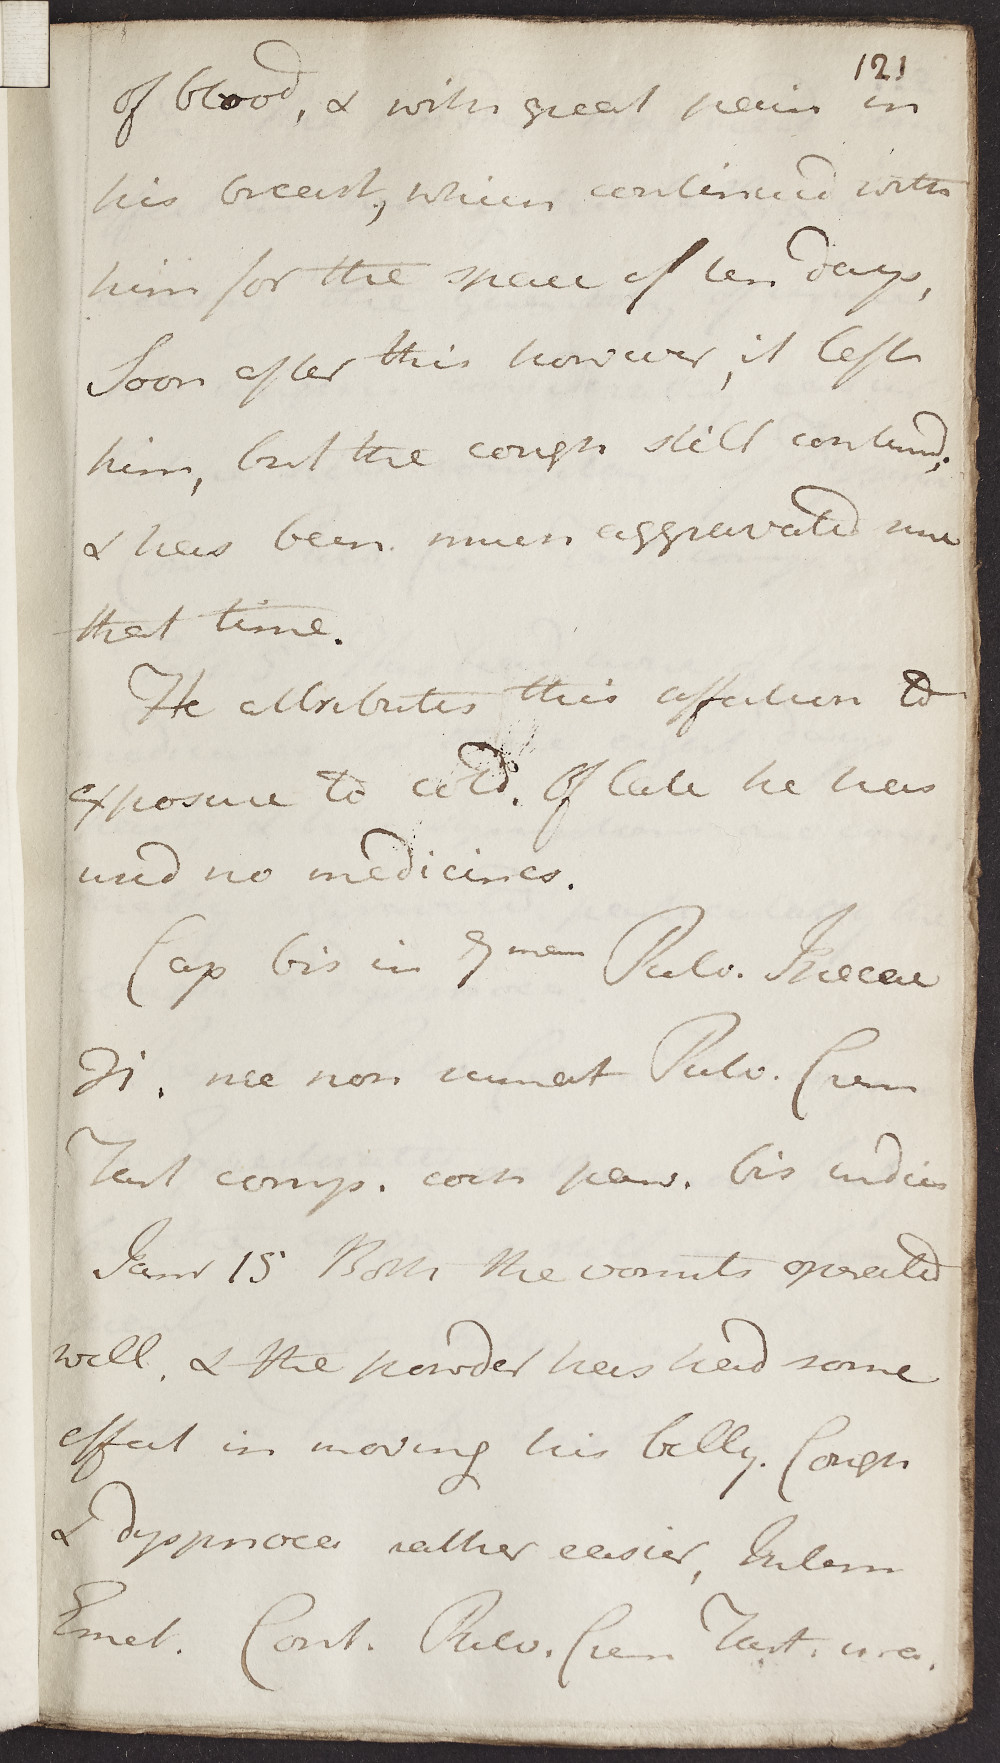 121
of blood, & with great pain in
his breast, which continued with
him for the space of ten days,
Soon after this however, it left
him, but the cough still contind;
& has been much aggravated since
that time.
He attributes this affection to
exposure to cold. Of late he has
used no medicines.
Cap bis in 7man Pulv. Ipecac
℈i. nec non sumat Pulv. Crem
Tart comp. coch parv. bis indies
Janr 15 Both the vomits operated
well, & the powder has had some
effect in moving his belly. Cough
& dyspnoea rather easier,
Emet. Cont. Pulv. Crem Tart.